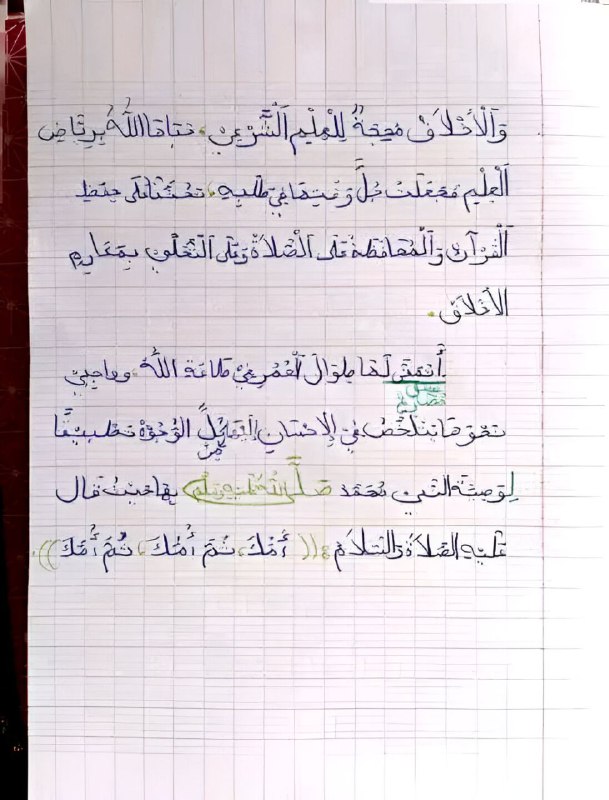 وَالْأَخْلَاقْ مُحِبَّةٌ لِلْعِلْمِ الشَّرْعِيِّ، حَبَاهَا اللَّهُ بِرِيَّاضِ
الْعِلْمِ فَجَعَلَتْ جُلَّ وَقْتِهَا فِي طَلَبِهِ، تَحُثُّنَا عَلَى حِفْظِ
الْقُرْآنِ وَالْمُحَافَظَةِ عَلَى الصَّلَاةِ وَعَلَى التَّحَلِّي بِمَكَارِمِ
الأَخْلَاقِ.
أَتَمَنَّى لَهَا طِوَالَ الْعُمُرِ فِي طَاعَةِ اللَّهِ وَوَاجِبِي
نَحْوَهَا يَتَلَخَّصُ فِي الإِحْسَانِ إِلَيْهَا بِكُلِّ الْوُجُوهْ تَطْبِيقًا
مِنْ
لِوَصِيَّةِ النَّبِيِّ مُحَمَّدْ صَلَّى اللَّهُ عَلَيْهِ وَسَلَّمَ بِهَا حَيْثُ قَالَ
عَلَيْهِ الصَّلَاةُ وَالسَّلَامُ: ((أُمُّكَ، ثُمَّ أُمُّكَ، ثُمَّ أُمُّكَ)).